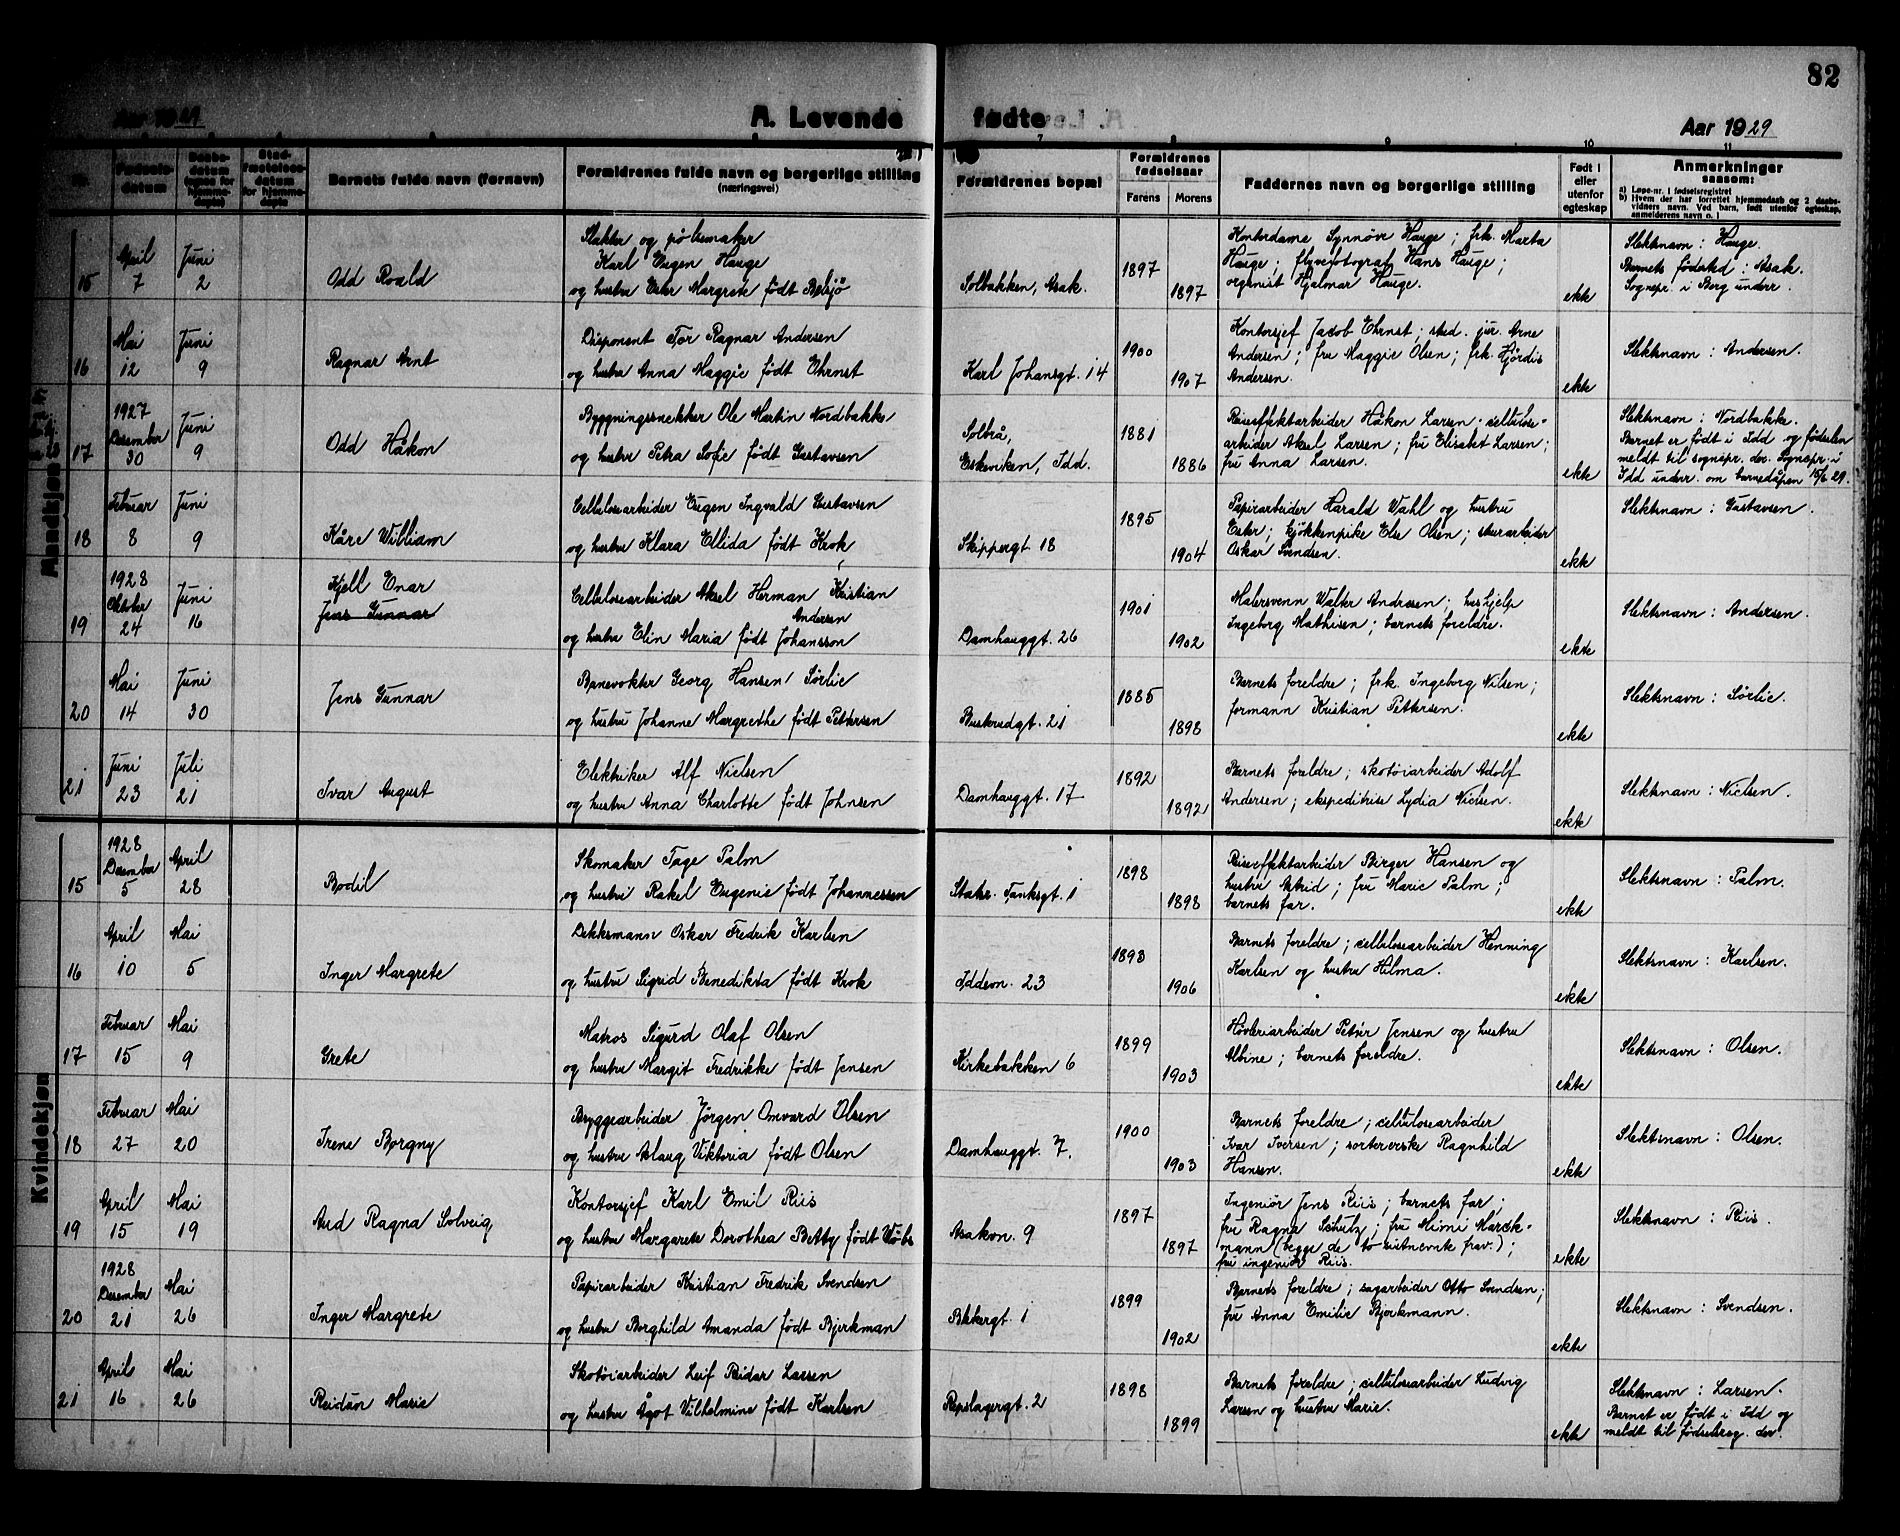 82
Aar 1929
A. Levende fødte
Aar 1929
Nr.
Fødsels-
datum
Daabs-
datum
Stad-
fæstelses-
datum
for hjemme-
døpte
Barnets fulde navn (fornavn)
Forældrenes fulde navn og borgerlige stilling
(næringsvei)
Forældrenes bopæl
Forældrenes
fødselsaar
Farens
Morens
Faddernes navn og borgerlige stilling
Født i
eller
utenfor
egteskap
Anmerkninger
saasom:
a) Løpe-nr. i fødselsregistret
b) Hvem der har forrettet hjemmedaab og 2 daabs-
vidners navn. Ved barn, født utenfor egteskap,
anmelderens navn o. l
7
8
9
10
11
Mandkjøn
15
April
7
Juni
2
Odd Roald
Slakter og pølsemaker
Karl Eugen Hauge
og hustru Ester Margrete født Belsjø
Solbakken, Asak.
1897
1897
Kontordame Synnøve Hauge; frk. Marta
Hauge; flyvefotograf Hans Hauge;
organist Hjalmar Hauge.
ekte
Slektsnavn: Hauge.
Barnets fødested: Asak.
Sognepr. i Berg underr.
16
Mai
12
Juni
9
Ragnar Arnt
Disponent Tor Ragnar Andersen
og hustru Anna Maggie født Ehrnst
Karl Johansgt. 14
1900
1907
Kontorsjef Jacob Ehrnst; sted. jur. Arne
Andersen; fru Maggie Olsen; frk. Hjørdis
Andersen.
ekte
Slektsnavn: Andersen.
17
1927
Desember
30
Juni
9
Odd Håkon
Byggningssnekker Ole Martin Nordbakke
og hustru Petra Sofie født Gustavsen
Solbrå,
Eskeviken, Idd.
1881
1886
Reiseeffektarbeider Håkon Larsen; cellulose-
arbeider Aksel Larsen; fru Elisabet Larsen;
fru Anna Larsen.
ekte
Slektsnavn: Nordbakke.
Barnet er født i Idd og fødselen
meldt til sognepr. der. Sognepr. i
Idd underr. om barnedåpen 15/6 29.
18
Februar
8
Juni
9
Kåre William
Celluloseabeider Eugen Ingvald Gustavsen
og hustru Klara Ellida født Krok
Skippergt 18
1895
1904
Papirarbeider Harald Wahl og hustru
Ester; kjøkkenpike Else Olsen; skurarbeider
Oskar Svendsen.
ekte
Slektsnavn: Gustavsen.
19
1928
Oktober
24
Juni
16
Kjell Enar
Jens Gunnar
Cellulosearbeider Aksel Herman Kristian
Andersen
og hustru Elin Maria født Johansson
Damhauggt. 26
1901
1902
Malersvenn Walter Andresen; hushjelp
Ingeborg Mathisen; barnets foreldre.
ekte
Slektsnavn: Andersen.
20
Mai
14
Juni
30
Jens Gunnar
Banevokter Georg Hansen Sørlie
og hustru Johanne Margrethe født Pettersen
Buskredgt. 21
1885
1898
Barnets foreldre; frk. Ingeborg Nilsen;
formann Kristian Pettersen.
ekte
Slektsnavn: Sørlie.
21
Juni
23
Juli
21
Ivar August
Elektriker Alf Nielsen
og hustru Anna Charlotte født Johnsen
Damhauggt. 17
1892
1892
Barnets foreldre; skotøiarbeider Adolf
Andersen; ekspeditrise Lydia Nielsen.
ekte
Slektsnavn: Nielsen.
Kvindekjøn
15
1928
Desember
5
April
28
Bodil
Skomaker Tage Palm
og hustru Rakel Eugenie født Johannessen
Staks. Tanksgt. 1
1898
1898
Reiseeffektarbeider Birger Hansen og
hustru Astrid; fru Marie Palm;
barnets far.
ekte
Slektsnavn: Palm.
16
April
10
Mai
5
Inger Margrete
Dekksmann Oskar Fredrik Karlsen
og hustru Sigrid Benedikta født Krok
Iddevn. 23
1893
1906
Barnets foreldre; cellulosearbeider Henning
Karlsen og hustru Hilma.
ekte
Slektsnavn: Karlsen.
17
Februar
15
Mai
9
Grete
Matros Sigurd Olaf Olsen
og hustru Margit Fredrikke født Jensen
Kirkebakken 6
1899
1903
Høvleriarbeider Petter Jensen og hustru
Albine; barnets foreldre.
ekte
Slektsnavn: Olsen.
18
Februar
27
Mai
20
Irene Borgny
Bryggearbeider Jørgen Omvard Olsen
og hustru Aslaug Viktoria født Olsen
Damhauggt. 7.
1900
1903
Barnets foreldre; cellulosearbeider
Ivar Iversen; sortererske Ragnhild
Hansen.
ekte
Slektsnavn: Olsen.
19
April
15
Mai
19
Aud Ragna Solveig
Kontorsjef Karl Emil Riis
og hustru Margarete Dorothea Betty født Wöbs
Asakvn. 9
1897
1897
Ingeniør Jens Riis; barnets far;
fru Ragna Schutz; fru Mimi Marck-
mann (begge de to sistnevnte frav.);
fru ingeniør Riis.
ekte
Slektsnavn: Riis.
20
1928
Desember
21
Mai
26
Inger Margrete
Papirarbeider Kristian Fredrik Svendsen
og hustru Borghild Amanda født Bjerkman
Blekergt. 1
1899
1902
Barnets foreldre; sagarbeider Otto Svendsen;
fru Anna Emilie Bjerkmann.
ekte
Slektsnavn: Svendsen.
21
April
16
Mai
26
Reidun Marie
Skotøiarbeider Leif Reidar Larsen
og hustru Ågot Vilhelmine født Karlsen
Repslagergt. 2
1898
1899
Barnets foreldre; cellulosearbeider Ludvig
Larsen og hustru Marie.
ekte
Slektsnavn: Larsen.
Barnet er født i Idd og
meldt til fødselsreg. der.